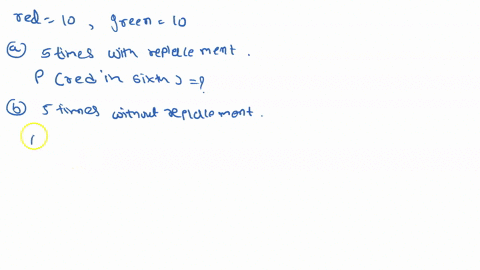 red = 10 , green = 10
(a) 5 times with replacement .
P (red in sixth) = ?
(b) 5 times without replacement .